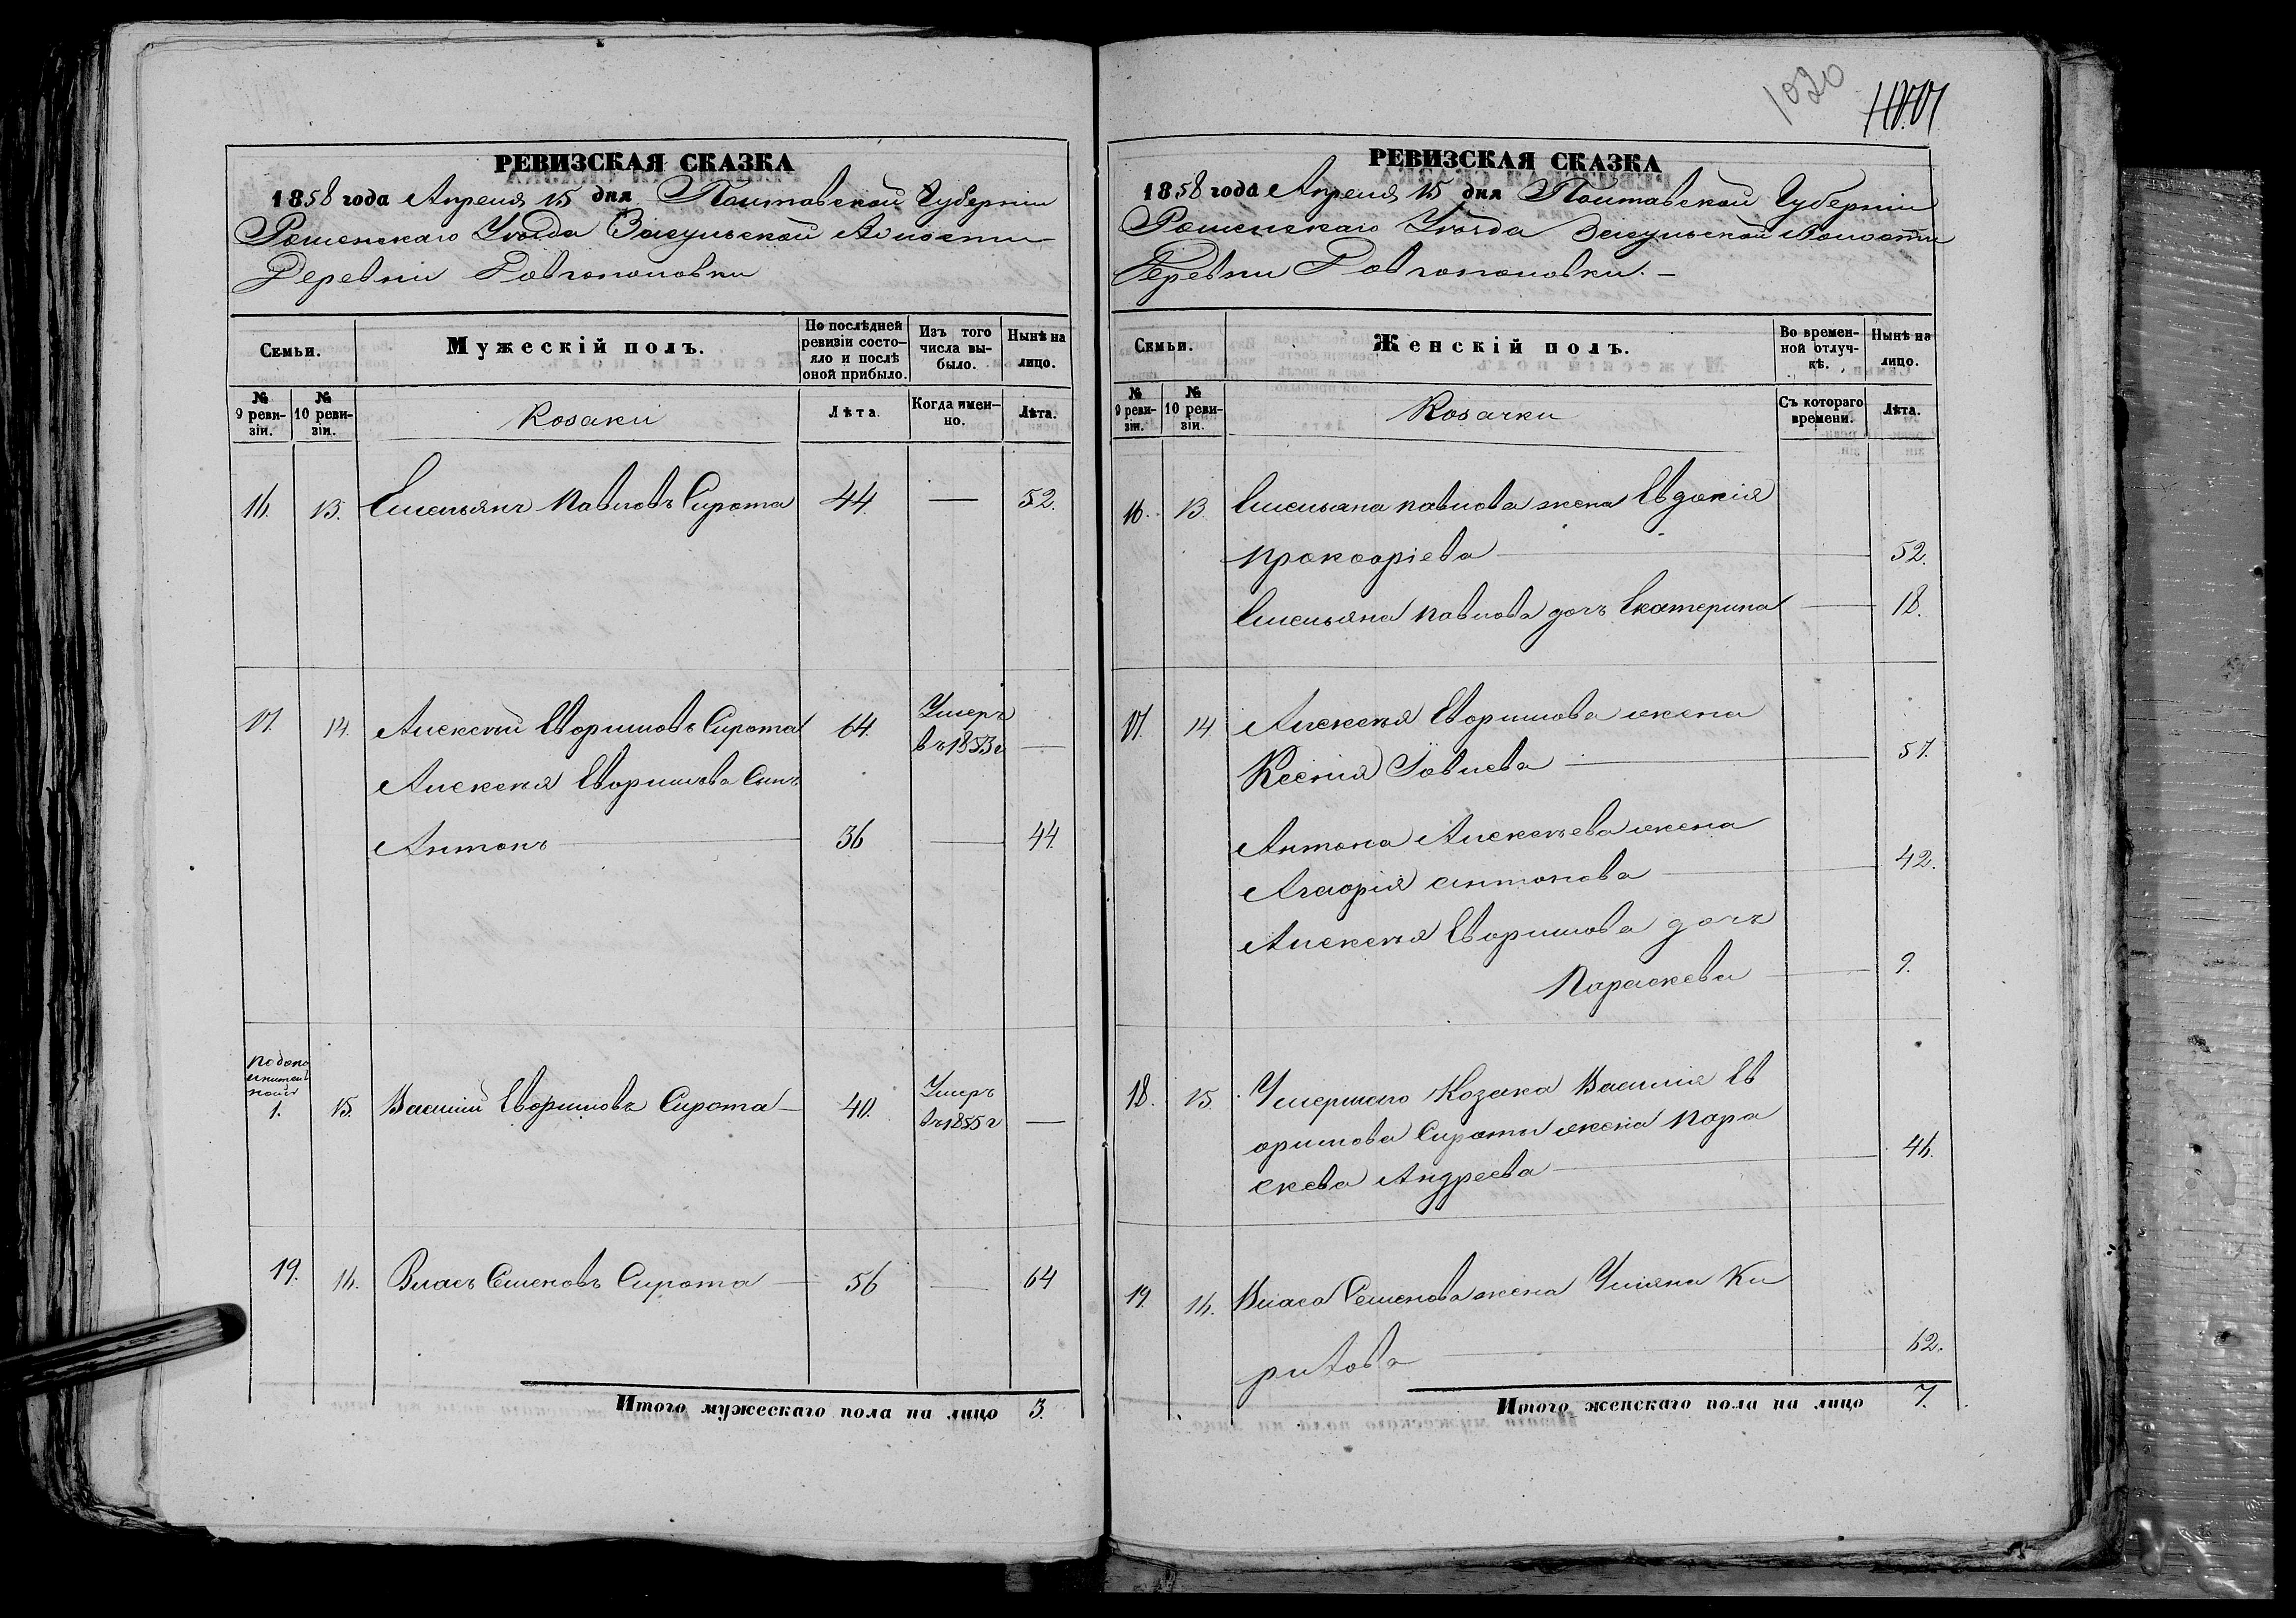 РЕВИЗСКАЯ СКАЗКА
1858 года Апреля 15 дня Полтавской Губерніи
Роменскаго Уѣзда Засульской Волости
Деревни Довгополовки
Семьи.
Мужескій полъ.
По послѣдней ревизіи состояло и послѣ оной прибыло.
Изъ того числа выбыло.
Нынѣ на лицо.
№ 9 ревизіи.
№ 10 ревизіи.
Козаки
Лѣта.
Когда именно.
Лѣта.
16. 13. Емельянъ Павловъ Сирота 44. — 52.
17. 14. Алексѣй Евфимовъ Сирота 64. Умеръ
въ 1853 г —
Алексѣя Евфимова Сынъ
Антонъ 36 — 44.
По дополнительной
1. 15. Василій Евфимовъ Сирота 40. Умеръ
въ 1855 г —
19. 16. Власъ Семеновъ Сирота 56 — 64
Итого мужескаго пола на лицо 3.
1020
РЕВИЗСКАЯ СКАЗКА
1858 года Апреля 15 дня Полтавской Губерніи
Роменскаго Уѣзда Засульской Волости
Деревни Довгополовки. –
Семьи.
Женскій полъ.
Во временной отлучкѣ.
Нынѣ на лицо.
№ 9 ревизіи.
№ 10 ревизіи.
Козачки
Съ котораго времени.
Лѣта.
16. 13. Емельяна Павлова жена Евдокія
Прокофіева 52.
Емельяна Павлова дочь Екатерина — 18.
17. 14. Алексѣя Евфимова жена
Ксенія Іовлева 57.
Антона Алексѣева жена
Агафія Антонова 42.
Алексѣя Евфимова дочь
Параскева 9.
18. 15. Умершаго Козака Василія Ев
фимова Сироты жена Пара
скева Андреева 46.
19. 16. Власа Семенова жена Уліяна Ки
рилова 62.
Итого женскаго пола на лицо 7.